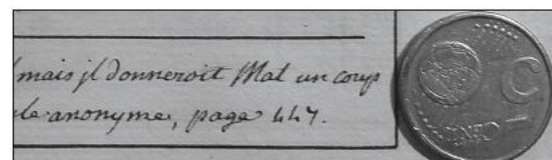 mais jl donneroit Mal un corps
le anonyme, page 447.